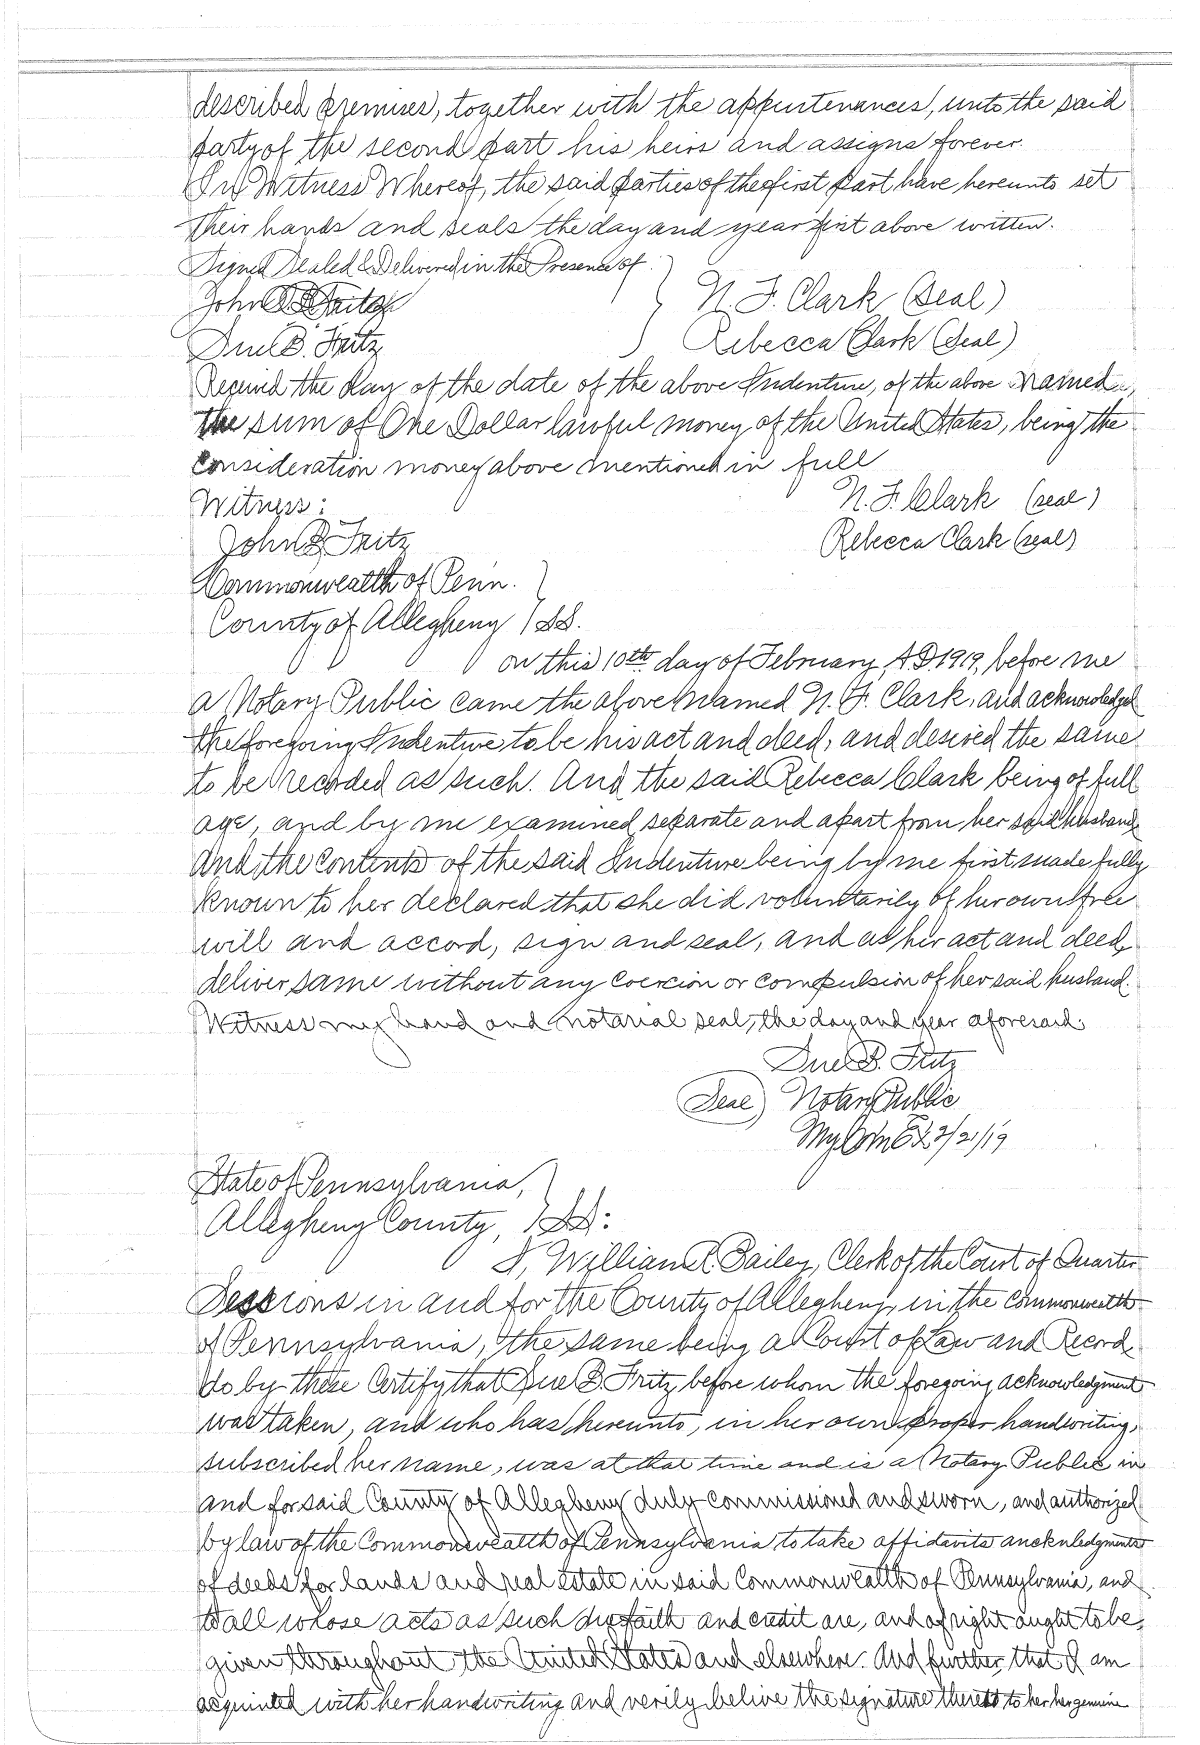 described premises, together with the appurtenances, unto the said
party of the second part his heirs and assigns forever.
In Witness Whereof, the said parties of the first part have hereunto set
their hands and seals the day and year first above written.
Signed Sealed & Delivered in the Presence of
John B Fritz
N. F. Clark (Seal)
Sue B. Fritz
Rebecca Clark (Seal)
Received the day of the date of the above Indenture, of the above named,
the sum of One Dollar lawful money of the United States, being the
consideration money above mentioned in full
Witness:
N. F. Clark (seal)
John B Fritz
Rebecca Clark (seal)
Commonwealth of Penn.
County of Allegheny } SS.
on this 10th day of February, A.D. 1919, before me
a Notary Public came the above named N. F. Clark, and acknowledged
the foregoing Indenture to be his act and deed, and desired the same
to be recorded as such. And the said Rebecca Clark being of full
age, and by me examined separate and apart from her said husband,
and the contents of the said Indenture being by me first made fully
known to her declared that she did voluntarily of her own free
will and accord, sign and seal, and as her act and deed,
deliver same without any coercion or compulsion of her said husband.
Witness my hand and notarial seal, the day and year aforesaid.
Sue B. Fritz
(Seal) Notary Public
My Com Ex 2/21/19
State of Pennsylvania,
Allegheny County, } SS:
I, William R. Bailey, Clerk of the Court of Quarter
Sessions in and for the County of Allegheny, in the Commonwealth
of Pennsylvania, the same being a Court of Law and Record,
do by these Certify that Sue B. Fritz before whom the foregoing acknowledgment
was taken, and who has hereunto, in her own proper handwriting,
subscribed her name, was at that time and is a Notary Public in
and for said County of Allegheny duly commissioned and sworn, and authorized
by law of the Commonwealth of Pennsylvania to take affidavits ancknledgments
of deeds for lands and real estate in said Commonwealth of Pennsylvania, and
to all whose acts as such due faith and credit are, and of right ought to be,
given throughout the United States and elsewhere. And further, that I am
acquinted with her handwriting and verily belive the signature thereto to her her genuine